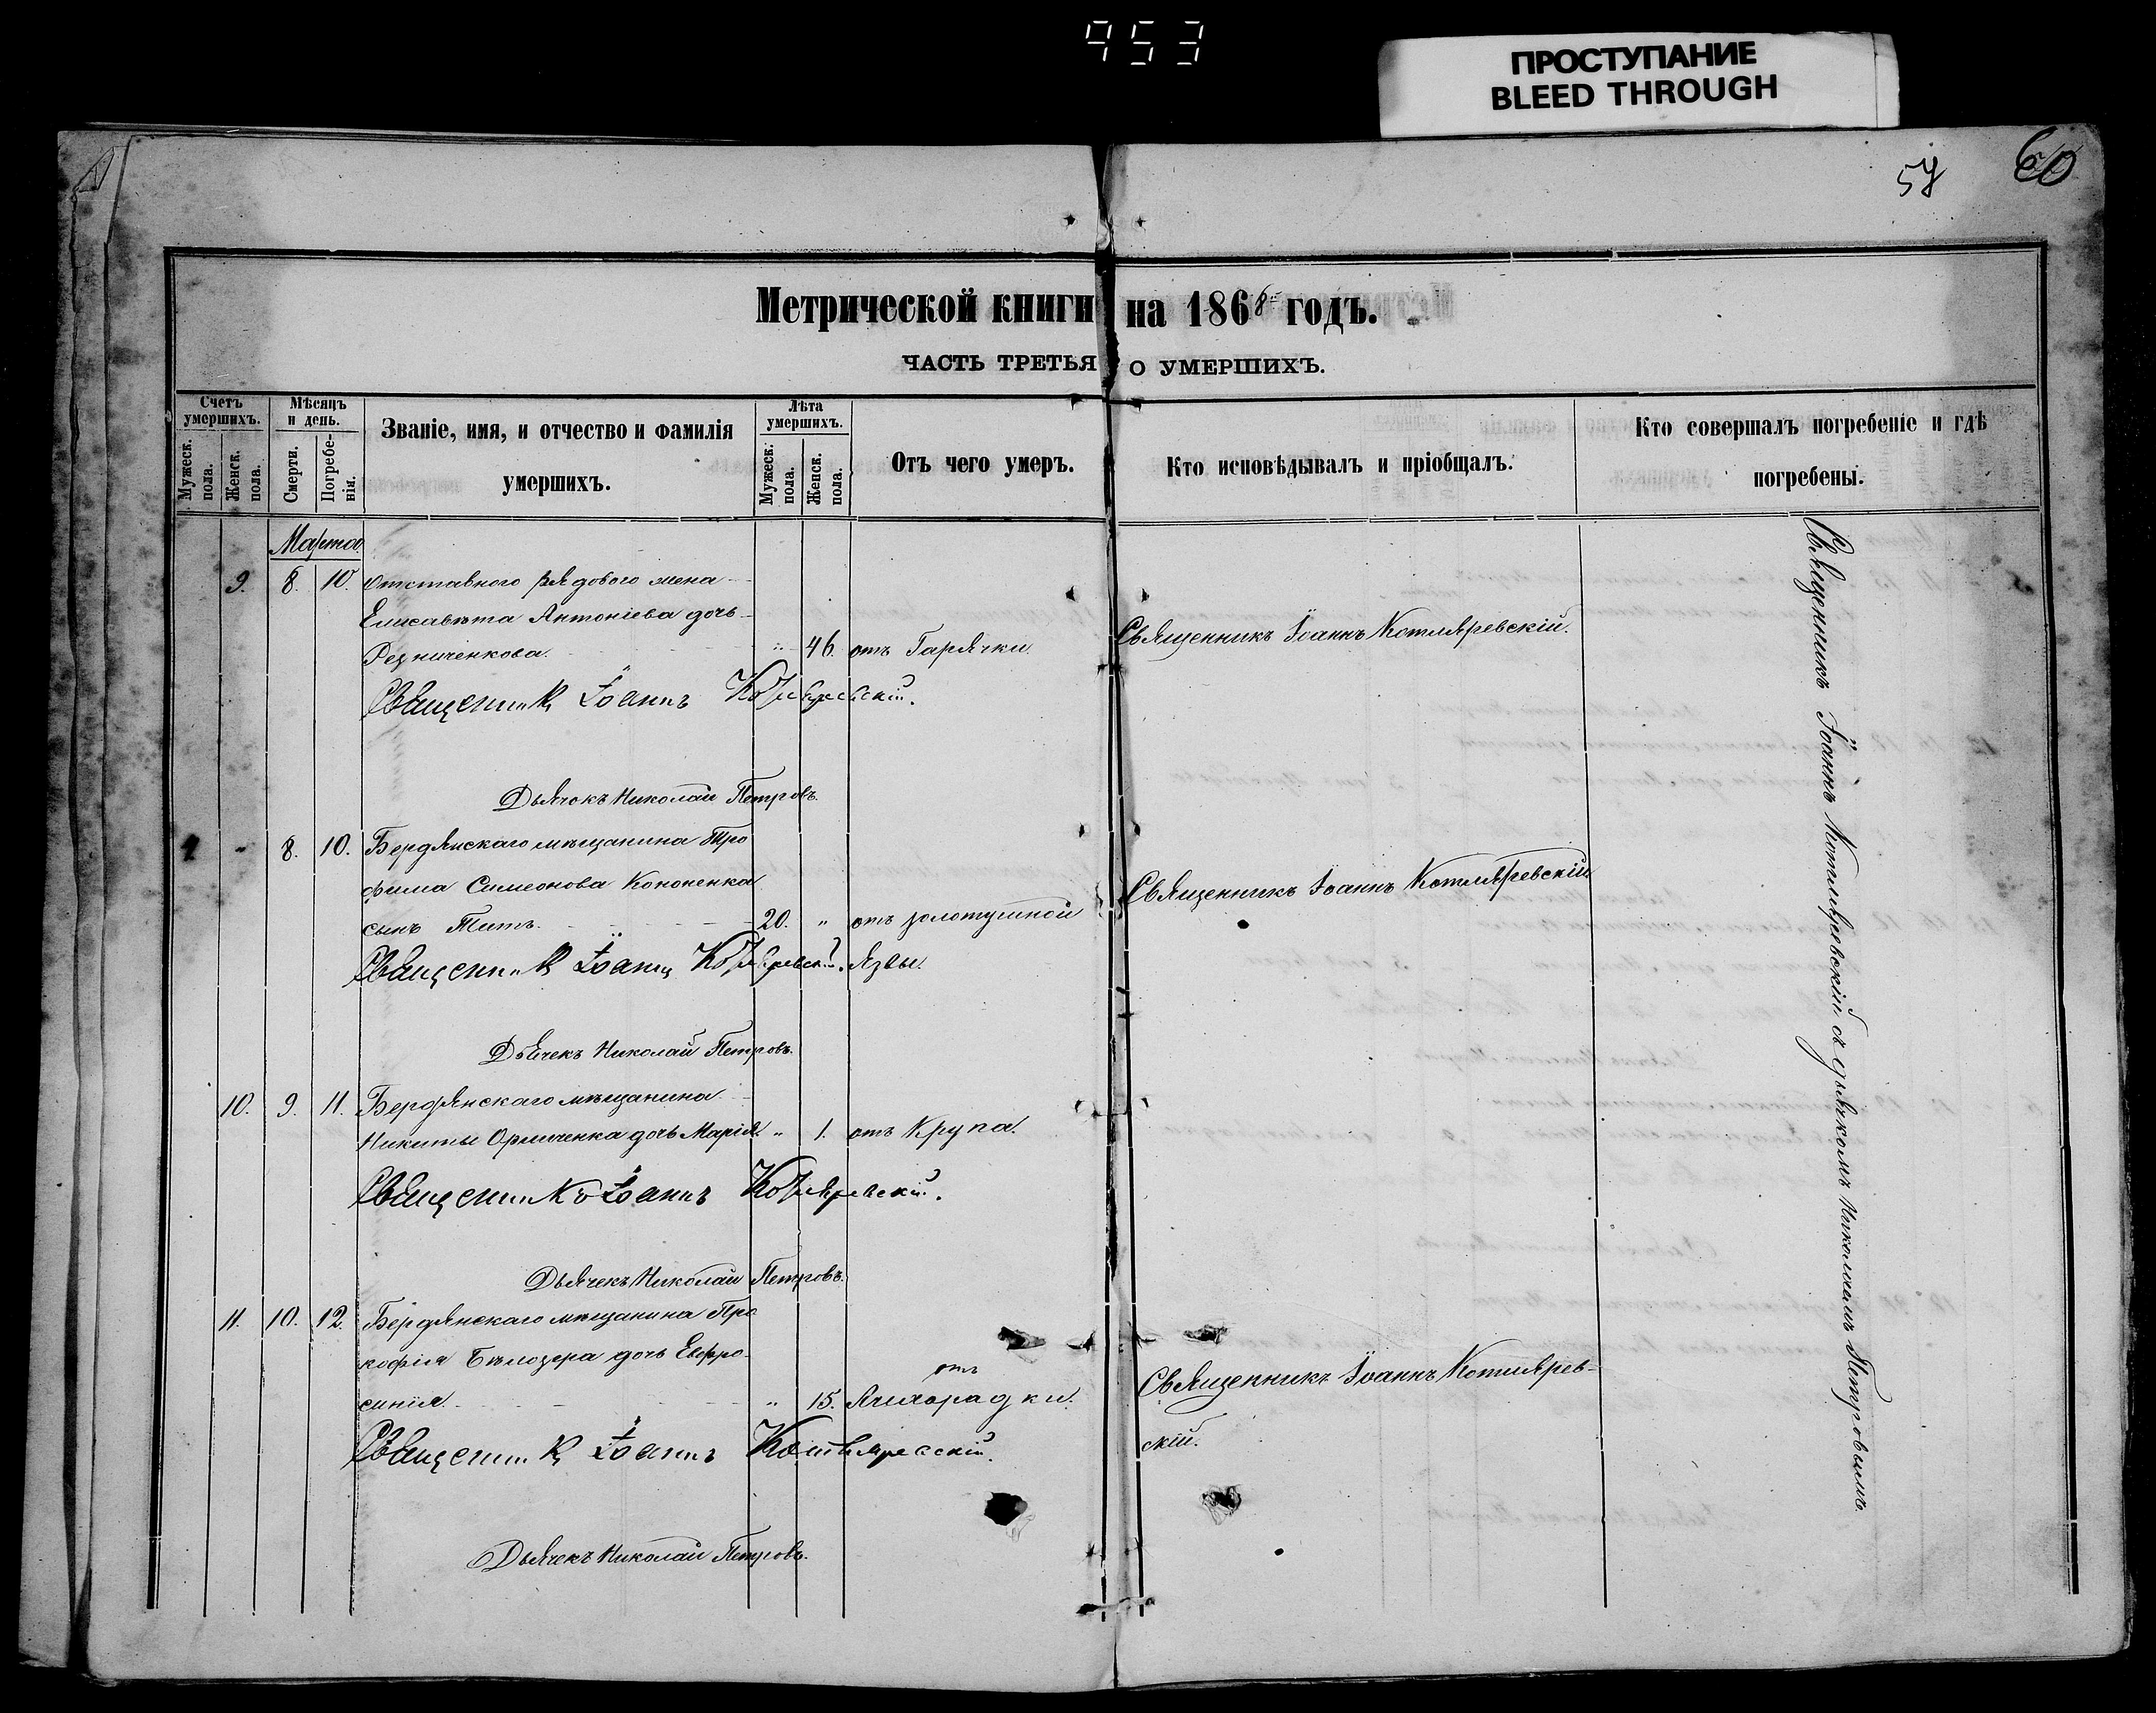 953
ПРОСТУПАНИЕ
BLEED THROUGH
57 60
Метрической книги на 1868 годъ.
ЧАСТЬ ТРЕТЬЯ О УМЕРШИХЪ.
Счетъ умершихъ.
Мужеск. пола.
Женск. пола.
Мѣсяцъ и день.
Смерти.
Погребенія.
Званіе, имя, и отчество и фамилія
умершихъ.
Лѣта умершихъ.
Мужеск. пола.
Женск. пола.
Отъ чего умеръ.
Кто исповѣдывалъ и пріобщалъ.
Кто совершалъ погребеніе и гдѣ
погребены.
Марта
9. 8. 10. Отставного рядового жена
Елисавѣта Антоніева дочь
Резниченкова. " 46. отъ Гарячки. Священникъ Іоаннъ Котляревскій.
Священникъ Іоаннъ Котляревскій.
Дьячокъ Николай Петровъ.
" 8. 10. Бердянскаго мѣщанина Тро
фима Симеонова Кононенка Священникъ Іоаннъ Котляревскій
сынъ Титъ. 20. " отъ золотушной
Священникъ Іоаннъ Котляревскій. язвы.
Дьячекъ Николай Петровъ.
10. 9. 11. Бердянскаго мѣщанина
Никиты дочь Марія. " 1. отъ Крупа.
Священникъ Іоаннъ Котляревскій.
Дьячекъ Николай Петровъ.
11. 10. 12. Бердянскаго мѣщанина Про
кофія Бѣлозера дочь Евфро-
синія. " 15. отъ Лихорадки. Священникъ Іоаннъ Котлярев-
Священникъ Іоаннъ Котляревскій. скій.
Дьячекъ Николай Петровъ.
Священникъ Іоаннъ Котляревскій съ дьячкомъ Николаемъ Петровымъ.